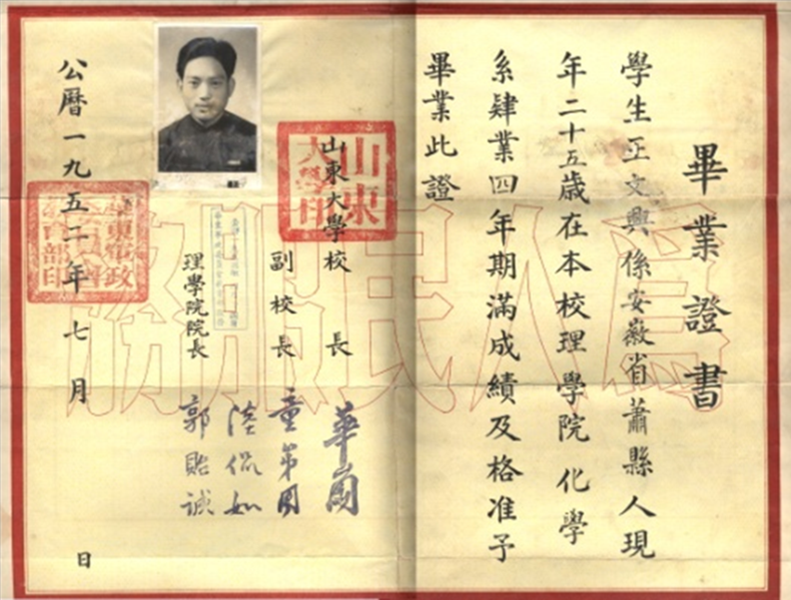 畢業證書
學生王文興係安徽省蕭縣人現
年二十五歲在本校理學院化學
系肄業四年期滿成績及格准予
畢業此證
為人民服務
山東大學校長 華崗
山東大學印
副校長 童第周
陸侃如
理學院院長 郭貽誠
公曆一九五二年七月 日